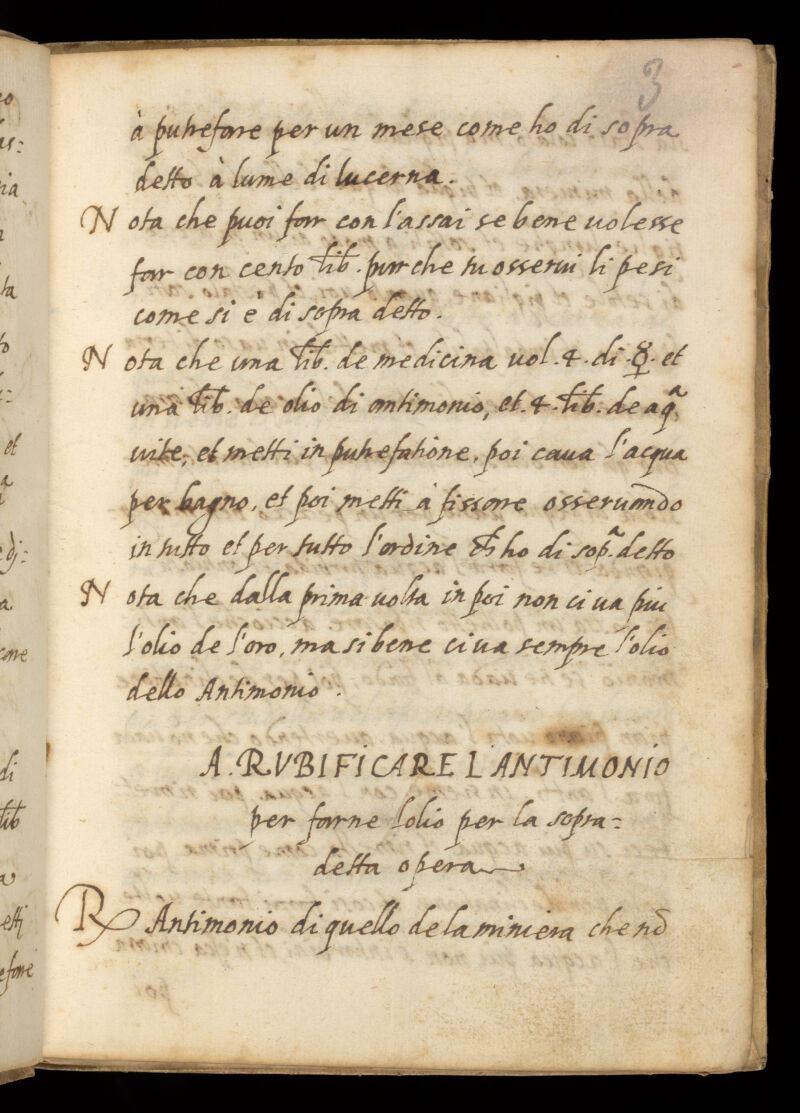 3
à putrefare per un mese come ho di sopra
detto à lume di lucerna.
Nota che puoi far con l'assai se bene uolesse
far con cento lib. pur che tu osserui li pesi
come si è di sopra detto.
Nota che una lib. de medicina uol .4. di .☿. et
una lib. de olio di antimonio, et .4. lib. de aqᵃ
uite, et metti in putrefatione, poi caua l'acqua
per bagno, et poi metti à fissare osseruando
in tutto et per tutto l'ordine ch̄ ho di sopᵃ detto
Nota che dalla prima uolta in poi non ci ua piu
l'olio de l'oro, ma si bene ci ua sempre l'olio
dello Antimonio.
A. RVBIFICARE L'ANTIMONIO
per farne l'olio per la sopra=
detta opera
℞ Antimonio di quello de la miniera che nō